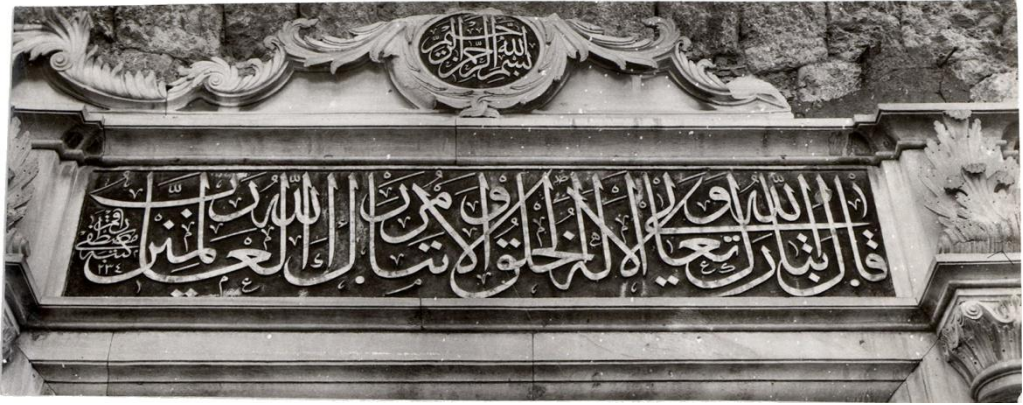 بسم الله الرحمن الرحيم
قال الله تبارك وتعالى ألا له الخلق والأمر تبارك الله رب العالمين
كتبه مصطفى راقم